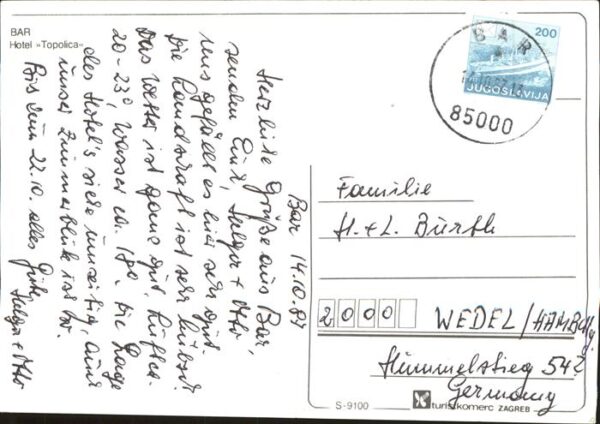 BAR
Hotel »Topolica«
Bar 14.10.87
Herzliche Grüße aus Bar,
senden Euch, Helga + Otto
uns gefällt es hier sehr gut.
Die Landschaft ist sehr hübsch
Das Wetter ist ganz gut. Lufttem.
20-23°, Wasser ca. 19°. Die Lage
des Hotel's siehe umseitig, auch
unser Zimmerblick ist so.
Bis zum 22.10. alles Gute,
Helga + Otto
200
JUGOSLAVIJA
BAR
85000
Familie
H. + L. Burth
2000 WEDEL/HAMBURG
Himmelstieg 54
Germany
S-9100
turistkomerc ZAGREB